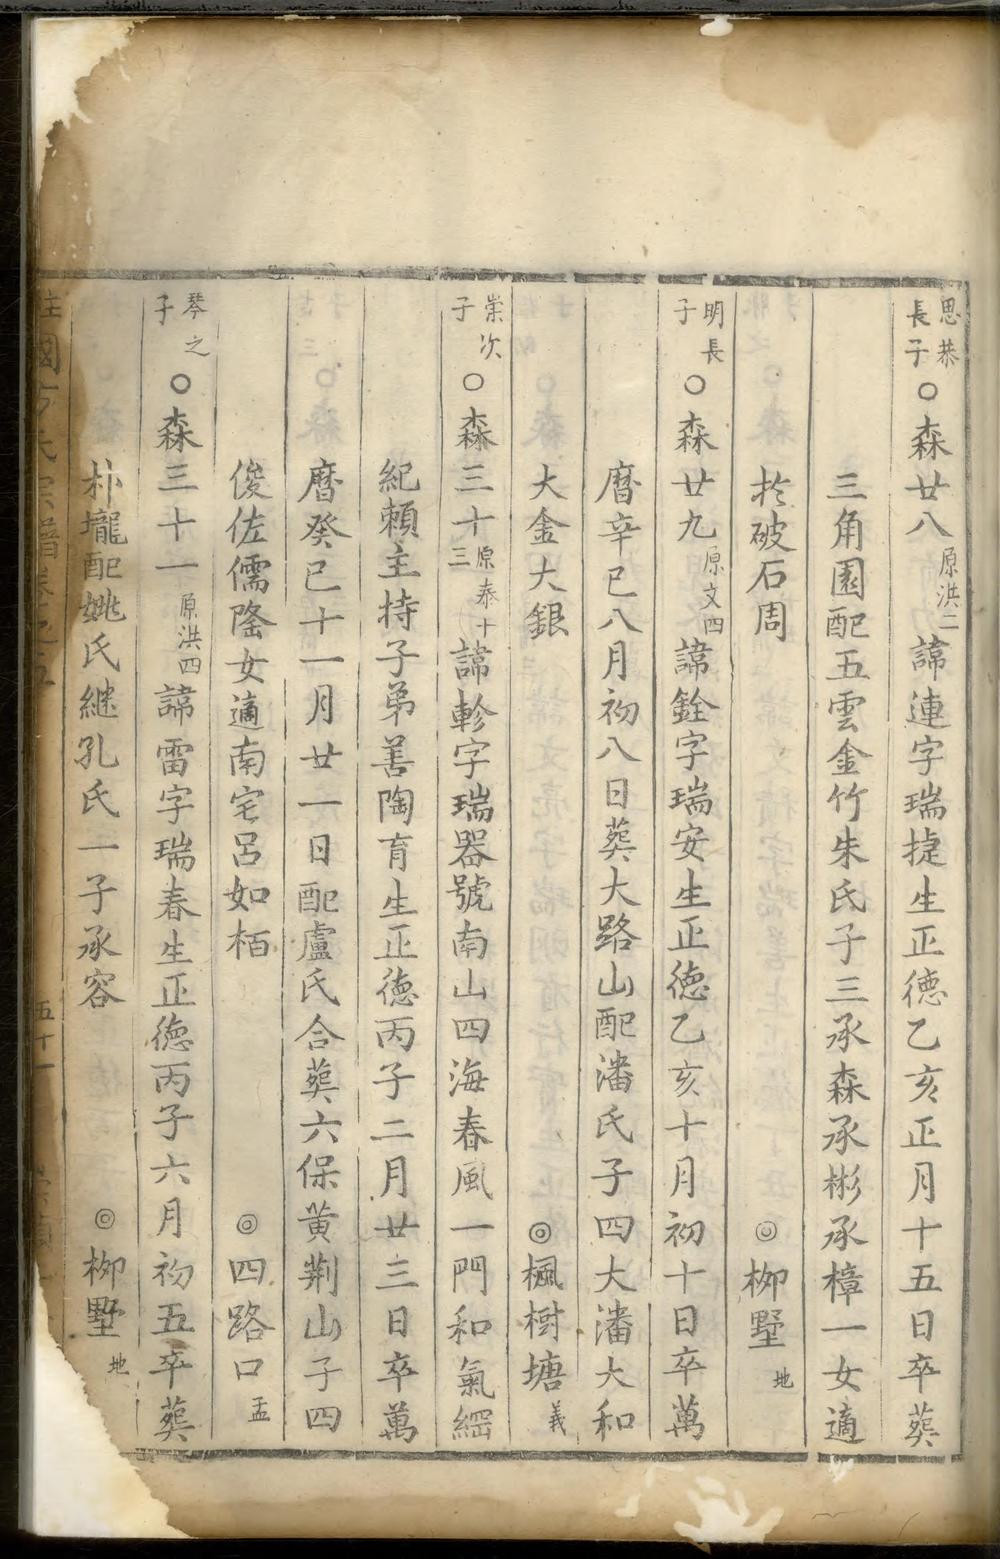 思恭長子○森廿八原洪二諱連字瑞捷生正德乙亥正月十五日卒葬
三角園配五雲金竹朱氏子三承森承彬承樟一女適
扵破石周◎栁墅地
明長子○森廿九原文四諱銓字瑞安生正德乙亥十月初十日卒萬
曆辛巳八月初八日葬大路山配潘氏子四大潘大和
大金大銀◎楓樹塘義
崇次子○森三十原泰十三諱軫字瑞器號南山四海春風一門和氣綱
紀賴主持子弟善陶育生正德丙子二月廿三日卒萬
曆癸巳十一月廿一日配盧氏合葬六保黄荆山子四
俊佐儒隆女適南宅呂如栢◎四路口孟
琴之子○森三十一原洪四諱雷字瑞春生正德丙子六月初五卒葬
朴壠配姚氏継孔氏一子承容◎栁墅地
氏宗譜卷之五 五十一